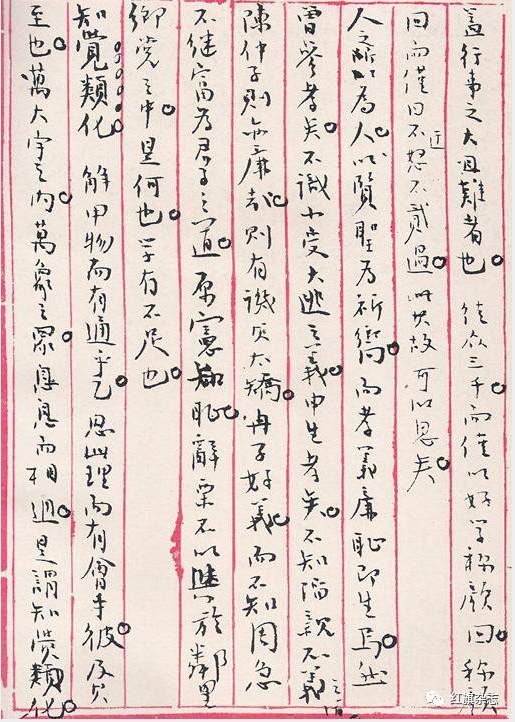 蓋行事之大且難者也。 徒众三千而僅以好学称顏回称顏
回而僅曰不迁怒不貳過。此其故可以思矣。
人之所以為人。以賢聖為祈嚮。而孝義廉恥即生焉。然
曾參孝矣。不識小受大逃之義。申生孝矣。不知陷親不義之
陳仲子則亦廉哉。則有譏其太矯。冉子好義。而不知周急
不继富為君子之道。原憲知恥。辭粟不以與於鄰里
鄉党之中。是何也。学有不足也。
知覺類化 解甲物而有通乎乙。思此理而有會乎彼。及其
至也。萬大宇之内。萬象之眾。息息而相通。是謂知覺類化。
红旗杂志